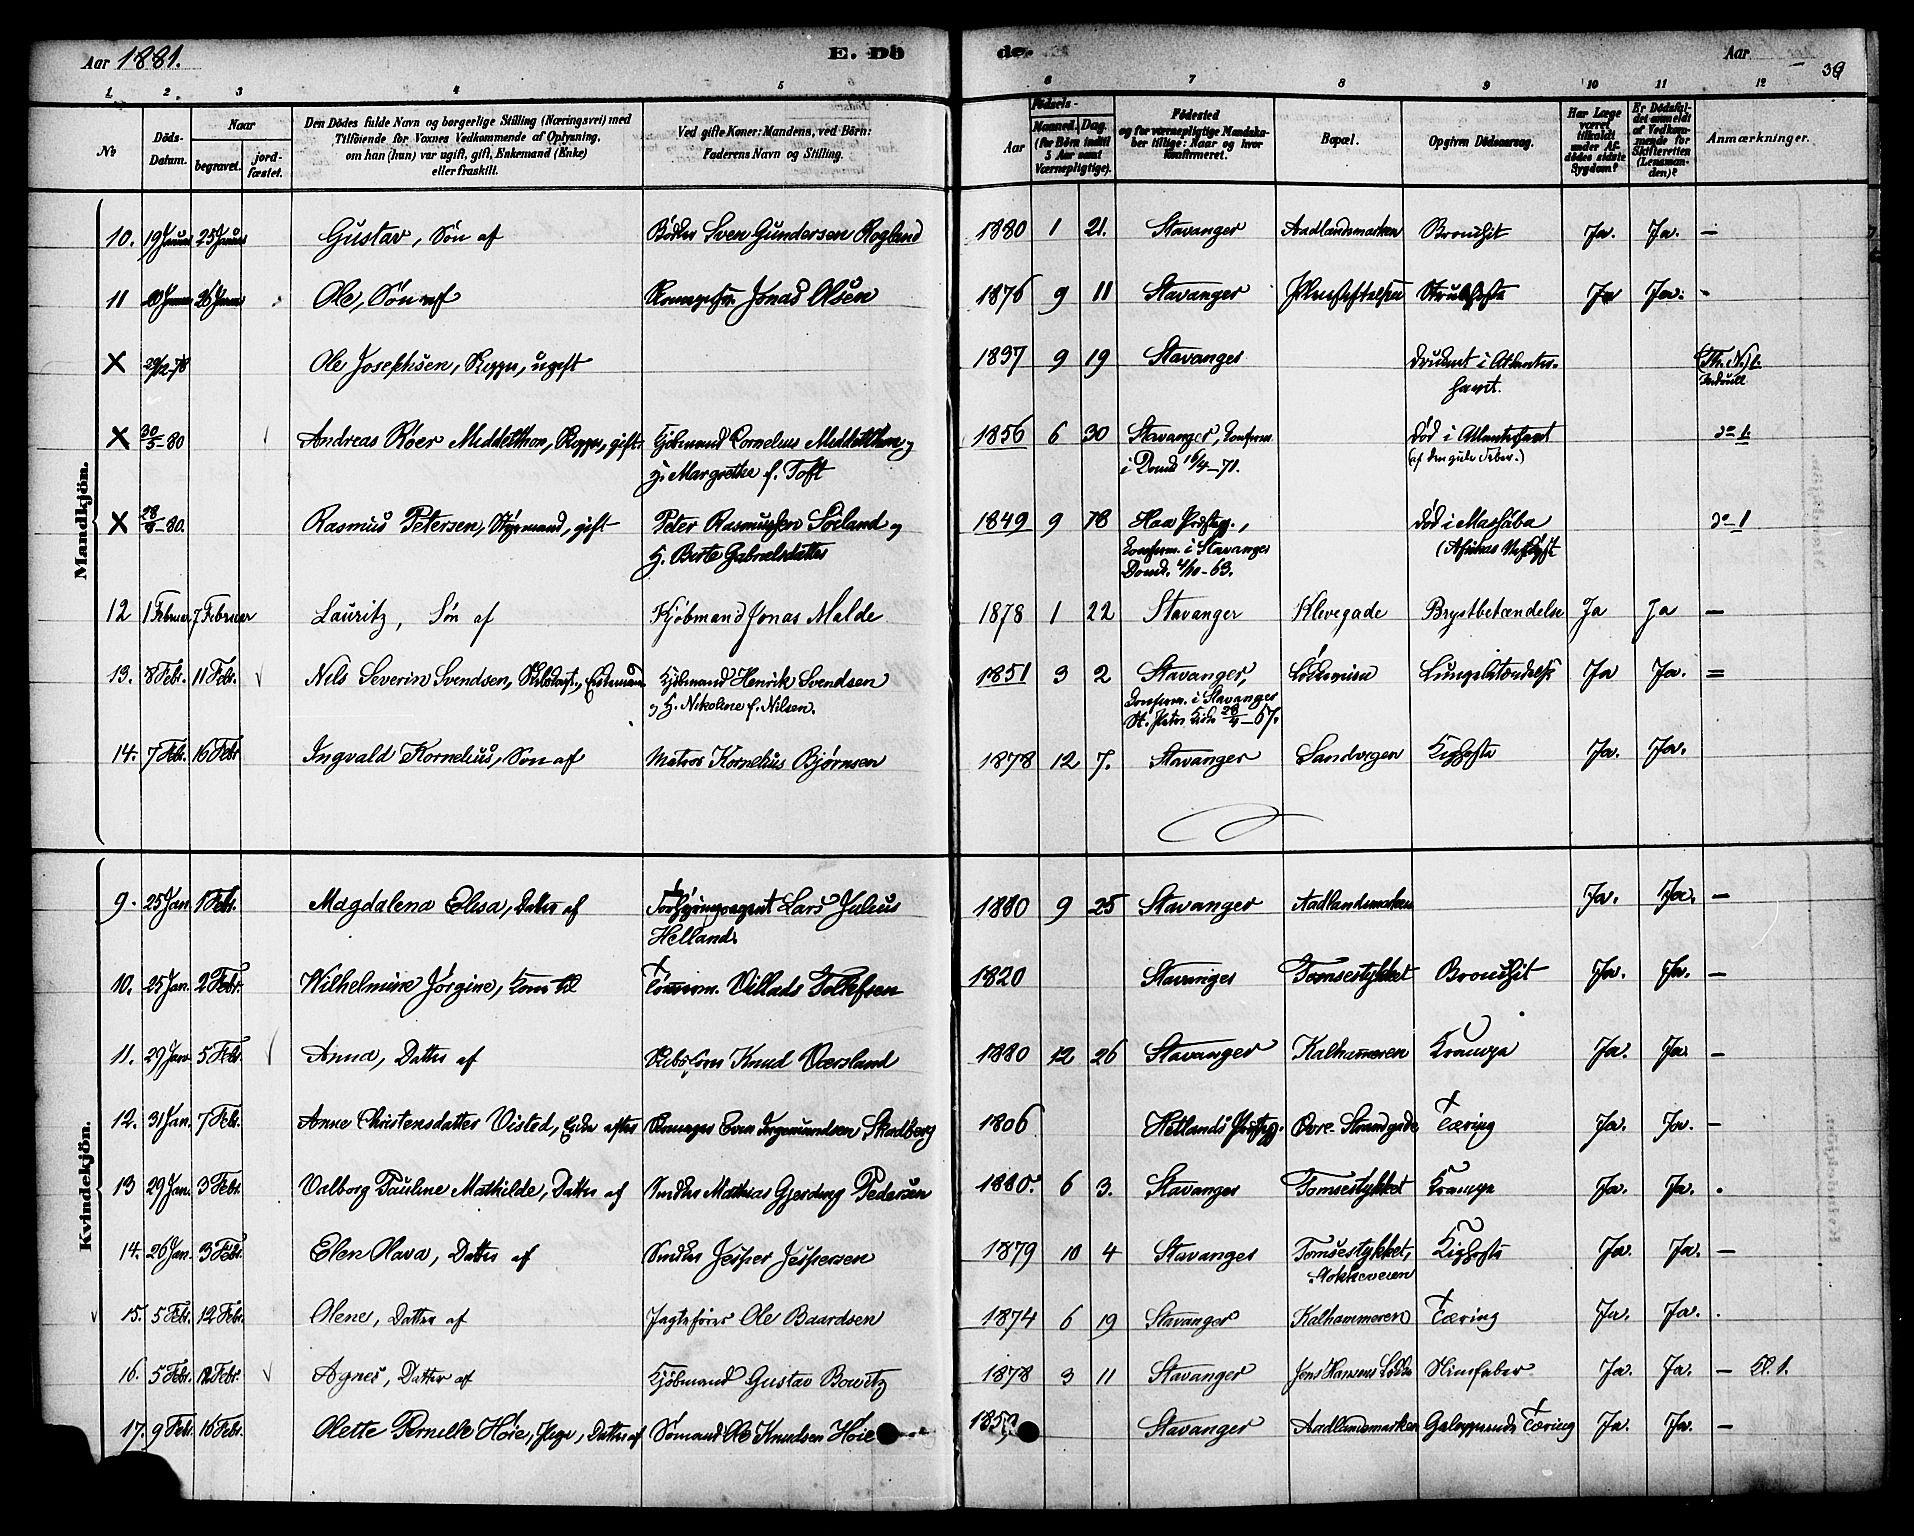 Aar 1881.
E. Dö
de.
Aar
39
1 2 3 4 5 6 7 8 9 10 11 12
No
Döds-Datum.
Naar
begravet.
jord-fæstet.
Den Dödes fulde Navn og borgerlige Stilling (Næringsvei) med
Tilföiende for Voxnes Vedkommende af Oplysning,
om han (hun) var ugift, gift, Enkemand (Enke)
eller fraskilt.
Ved gifte Koner: Mandens, ved Börn:
Faderens Navn og Stilling.
Födsels-
Aar
Maaned. Dag.
(for Börn indtil
5 Aar samt
Værnepligtige).
Födested
og for værnepligtige Mandska-
ber tillige: Naar og hvor
konfirmeret.
Bopæl.
Opgiven Dödsaarsag.
Har Læge
været
tilkaldt
under Af-
dödes sidste
Sygdom?
Er Dödsfal-
det anmeldt
af Vedkom-
mende for
Skifteretten
(Lensman-
den)?
Anmærkninger.
Mandkjön.
10. 19 Januar 25 Januar Gustav, Søn af Bødker Sven Gundersen Rogland 1880 1 21. Stavanger Aadlandsmarken Bronchit Ja. Ja. —
11 Ole, Søn af Jonas Olsen 1876 9 11 Stavanger Strubehoste Ja Ja. -
X 29/12-78 Ole Josephsen, ugift 1837 9 19 Stavanger druknet i Atlanter-
havet.
X 30/5-80 Andreas Køer Middelthon, gift Kjøbmand Cornelius Middelthon og 1856 6 30 Stavanger, Konfirm. død i Atlanterhavet do 1.
H. Margrethe f. Toft i Domk 16/4-71. (af den gule Feber.)
X 28/8-80. Rasmus Petersen, Styrmand, gift Peter Rasmussen Soiland og 1849 9 18 Haa Præstgj., død i Massaba do 1
H. Berte Gabrielsdatter Konfirm. i Stavanger (Afrikas Vestkyst
Domk. 4/10-63.
12 1 Februar 7 Februar Lauritz, Søn af Kjøbmand Jonas Malde 1878 1 22 Stavanger Klevegade Brystbetændelse Ja Ja —
13. 8 Febr. 11 Febr. Nils Severin Svendsen, Enkemand Kjøbmand Henrik Svendsen 1851 3 2 Stavanger, Lungebetændelse Ja Ja. =
og H. Nikoline f. Nilsen. Konfirm. i Stavanger
St. Petri Kirke 28/4-67.
14. 7 Febr. 16 Febr Ingvald Kornelius, Søn af Matros Kornelius Bjørnsen 1878 12 7. Stavanger Sandvigen Kighoste Ja. Ja.
Kvindekjön.
9. 25 Jan 1 Febr. Magdalena Elisa, Datter af Forhyringsagent Lars Julius 1880 9 25 Stavanger Aadlandsmarken Ja. Ja. —
Helland.
10. 25 Jan. 2 Febr. Wilhelmine Jörgine, Kone til Villads Tollefsen 1820 Stavanger Tomsestykket Bronchit Ja. Ja. —
11. 29 Jan 5 Febr. Anna, Datter af Knud Værsland 1880 12 26 Stavanger Kalhammeren Krampe Ja. Ja. —
12. 31 Jan. 7 Febr. Anne Christensdatter Visted, Enke efter Sven Ingemundsen Skadberg 1806 Hetlands Præstgj. Øvre Strandgade Tæring Ja. Ja. —
13 29 Jan. 3 Febr. Valborg Pauline Mathilde, Datter af Snedker Mathias Gjerding Pedersen 1880. 6 3. Stavanger Tomsestykket Krampe Ja. Ja. .
14. 26 Jan. 3 Febr. Elen Olava, Datter af Snedker Jesper Jespersen 1879 10 4 Stavanger Tomsestykket, Kighoste Ja. Ja. —
Stokkeveien
15. 5 Febr. 12 Febr. Olene, Datter af Jagtefører Ole Baardsen 1874 6 19 Stavanger Kalhammeren Tæring Ja. Ja. .
16. 5 Febr. 12 Febr. Agnes, Datter af Kjøbmand Gustav Bowitz 1878 3 11 Stavanger Jens Hansens Løkke Nerveber Ja. Ja. — Kl. 1.
17. 9 Febr. 16 Febr. Olette Pernille Høie, Pige, Datter af Sømand Ole Knudsen Høie Stavanger Aadlandsmarken Galopperende Tæring Ja. Ja. —